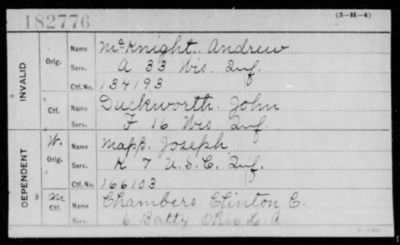 182776
(3-H-4)
INVALID
Orig.
Name McKnight. Andrew
Serv. A 33 Wis. Inf.
Ctf. No. 134193
Ctf.
Name Duckworth. John
Serv. F 16 Wis Inf.
DEPENDENT
W.
Orig.
Name Mapp. Joseph
Serv. K 7 U.S.C. Inf.
Ctf. No. 166103
Ctf.
Name Chambers Clinton C.
Serv. 6 Batty Ohio L. A.